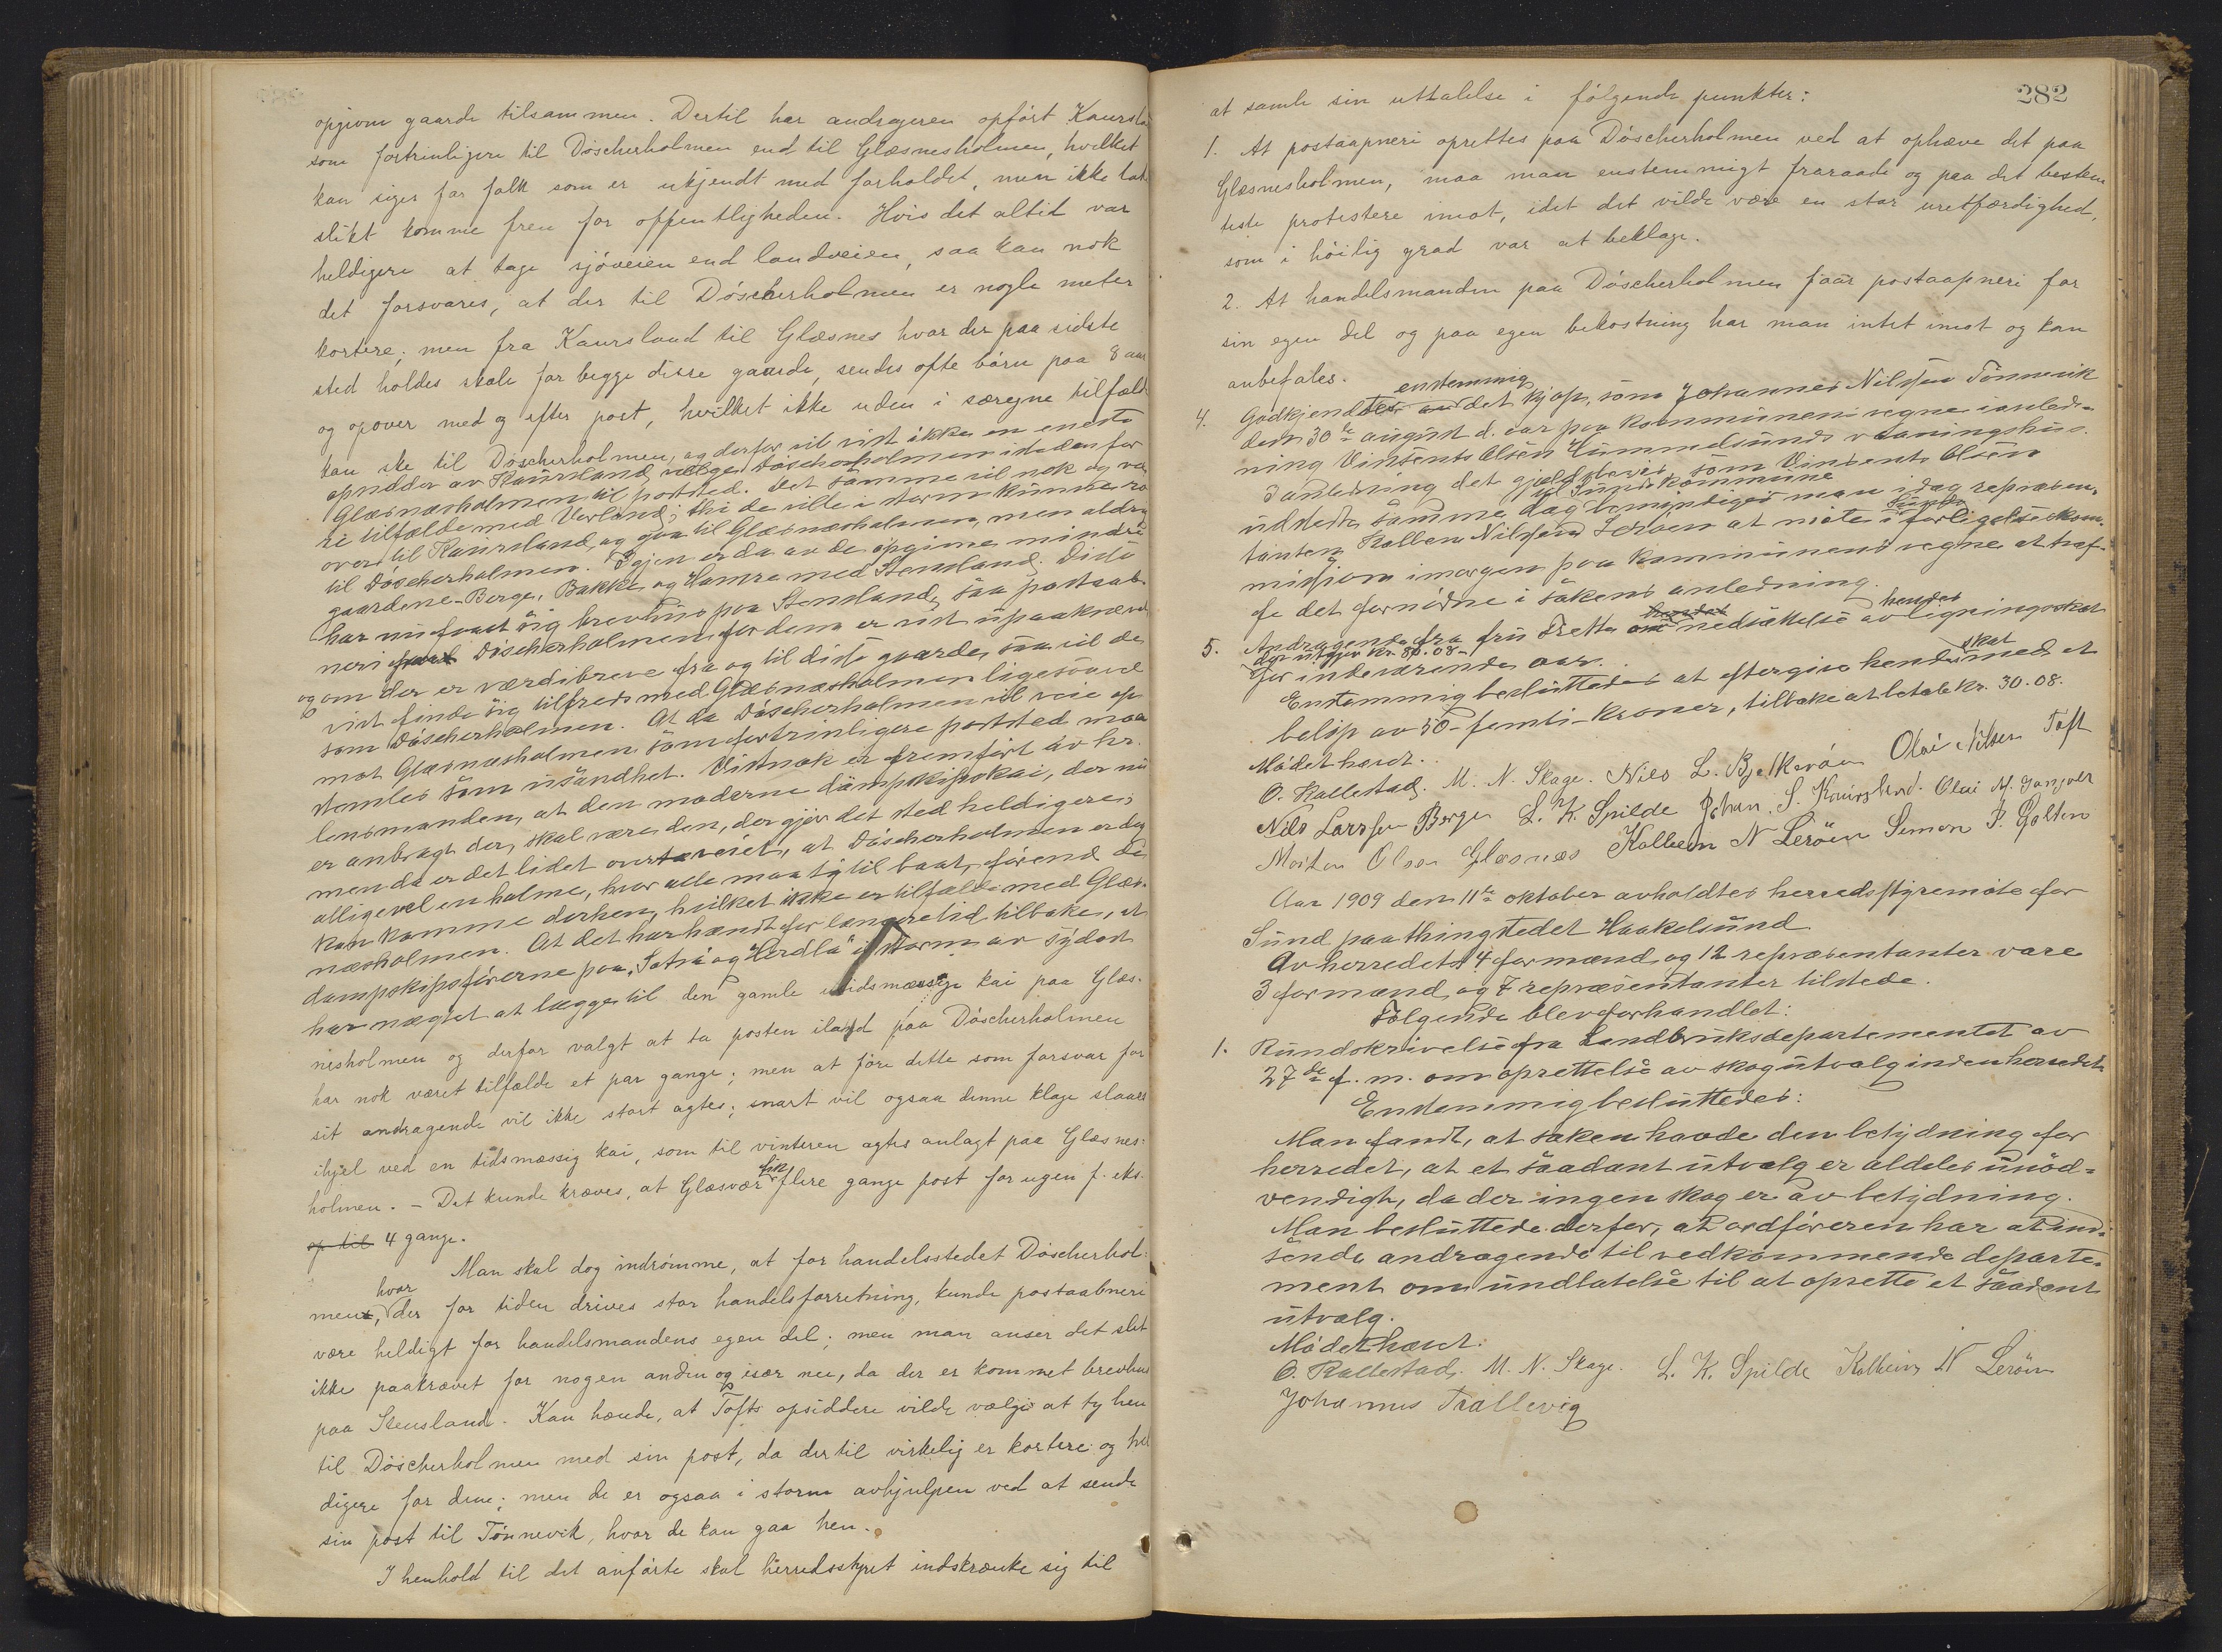 opgivne gaarde tilsammen. Dertil har andrageren opført Kaursla
som fortrinligere til Döscherholmen end til Glæsnesholmen, hvilket
kan siges for folk som er ukjendt med forholdet, men ikke lat
slikt komme frem for offentligheden. Hvis det altid var
heldigere at tage sjöveien end landveien, saa kan nok
det forsvares, at der til Döscherholmen er nogle meter
kortere; men fra Kaursland til Glæsnes hvor der paa sidste
sted holdes skole for begge disse gaarde, sendes ofte börn paa 8 aar
og opover med og efter post, hvilket ikke uden i særegne tilfæld
kan ske til Döscherholmen, og derfor vil vist ikke en eneste
opsidder av Kaursland vælge Döscherholmen istedenfor
Glæsnæsholmen til poststed. Det samme vil nok og væ
re tilfælde med Verland; thi de ville i storm kunne ro
over til Kaursland, og gaa til Glæsnæsholmen, men aldri
til Döscherholmen. Igjen er da av de opgivne mindre
gaardene - Berge, Bakke og Hamre med Stensland. Disse
har nu faaet sig brevhus paa Stensland, saa postaab-
neri paa Döscherholmen for dem er vist upaakrævet
og om der er værdibreve fra og til disse gaarde, saa vil de
vist finde sig tilfreds med Glæsnæsholmen ligesaavel
som Döscherholmen. At da Döscherholmen vil veie op
mot Glæsnæsholmen som fortrinligere poststed maa
stemples som usandhet. Vistnok er fremført av hr.
lensmanden, at den moderne dampskipskai, der nu
er anbragt der, skal være den, der gjør det sted heldigere;
men da er det lidet overveiet, at Döscherholmen er dog
alligevel en holme, hvor alle maa ty til baat, førend de
kan komme derhen, hvilket ikke er tilfælde med Glæs-
næsholmen. At det har hændt for længere tid tilbake, at
dampskipsførerne paa "Satra" og "Herdla" i storm av sydost
har nægtet at lægge til den gamle utidsmæssige kai paa Glæs-
nesholmen og derfor valgt at ta posten iland paa Döscherholmen
har nok været tilfælde et par gange; men at före dette som forsvar for
sit andragende vil ikke stort agtes; snart vil ogsaa denne klage slaaes
ihjel ved en tidsmæssig kai, som til vinteren agtes anlagt paa Glæsnes-
holmen. - Det kunde kræves, at Glæsvær fik flere gange post for ugen f. eks.
op til 4 gange.
Man skal dog indrömme, at for handelsstedet Döscherhol-
men, hvor der for tiden drives stor handelsforretning, kunde postaabneri
være heldigt for handelsmandens egen del; men man anser det slet
ikke paakrævet for nogen anden og især nu, da der er kommet brevhus
paa Stensland. Kan hænde, at Tofts opsiddere vilde vælge at ty hen
til Döscherholmen med sin post, da dertil virkelig er kortere og hel
digere for dem; men de er ogsaa i storm avhjulpen ved at sende
sin post til Tönnevik, hvor de kan gaa hen.
I henhold til det anförte skal herredsstyret indskrænke sig til
282
at samle sin uttalelse i fölgende punkter:
1. At postaapneri oprettes paa Döscherholmen ved at ophæve det paa
Glæsnesholmen, maa man enstemmigt fraraade og paa det bestem
teste protestere imot, idet det vilde være en stor uretfærdighed,
som i höilig grad var at beklage.
2. At handelsmanden paa Döscherholmen faar postaapneri for
sin egen del og paa egen bekostning har man intet imot og kan
anbefales.
4. Godkjendtes enstemmig det kjöp, som Johannes Nilssen Tönnevik
den 30te august d. aar paa kommunens vegne i anled-
ning Vinsents Olsen Hummelsunds vaaningshus.
I anledning det gjældsbevis, som Vinsents Olsen
utstedte samme dag til Sunds kommune bemyndiges man idag repræsen-
tanten Kolbein Nilssen Leröen at möte i Sunds forligelseskom-
mission imorgen paa kommunens vegne at træf-
fe det fornödne i sakens anledning.
5. Andragende fra fru Trette om nedsættelse av hendes ligningsskat
der utgjør kr. 80.08-
for indeværende aar.
Enstemmig besluttedes at eftergive hendes skat med et
belöp av 50 - femti - kroner, tilbake at betale kr. 30.08.
Mödet hævet.
O. Kallestad. M. N. Skage. Nils L. Bjelkeröen Olai Nilsen Toft
Nils Larssen Berge L. K. Spilde Johan S. Kaursland. Olai M. Ganjoler
Morten Olsen Glæsnæs Kolbein N Leröen Simon P. Golten
Aar 1909 den 11te oktober avholdtes herredsstyremöte for
Sund paa thingstedet Haakelsund
Av herredets 4 formænd og 12 repræsentanter vare
3 formænd og 7 repræsentanter tilstede.
Fölgende blev forhandlet:
1. Rundskrivelse fra Landbruksdepartementet av
27de f. m. om oprettelse av skogutvalg inden herredet.
Enstemmig besluttedes:
Man fandt, at saken havde den betydning for
herredet, at et saadant utvalg er aldeles unöd-
vendigt, da der ingen skog er av betydning.
Man besluttede derfor, at ordföreren har at ind-
sende andragende til vedkommende departe-
ment om undlatelse til at oprette et saadant
utvalg.
Mödet hævet.
O. Kallestad. M. N. Skage. L. K. Spilde Kolbein N Leröen
Johannes Trællevig